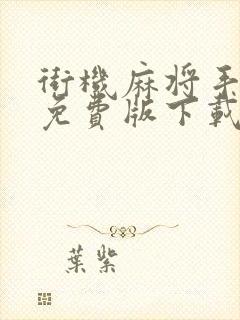 街機麻将手
免費版下載
葉紫